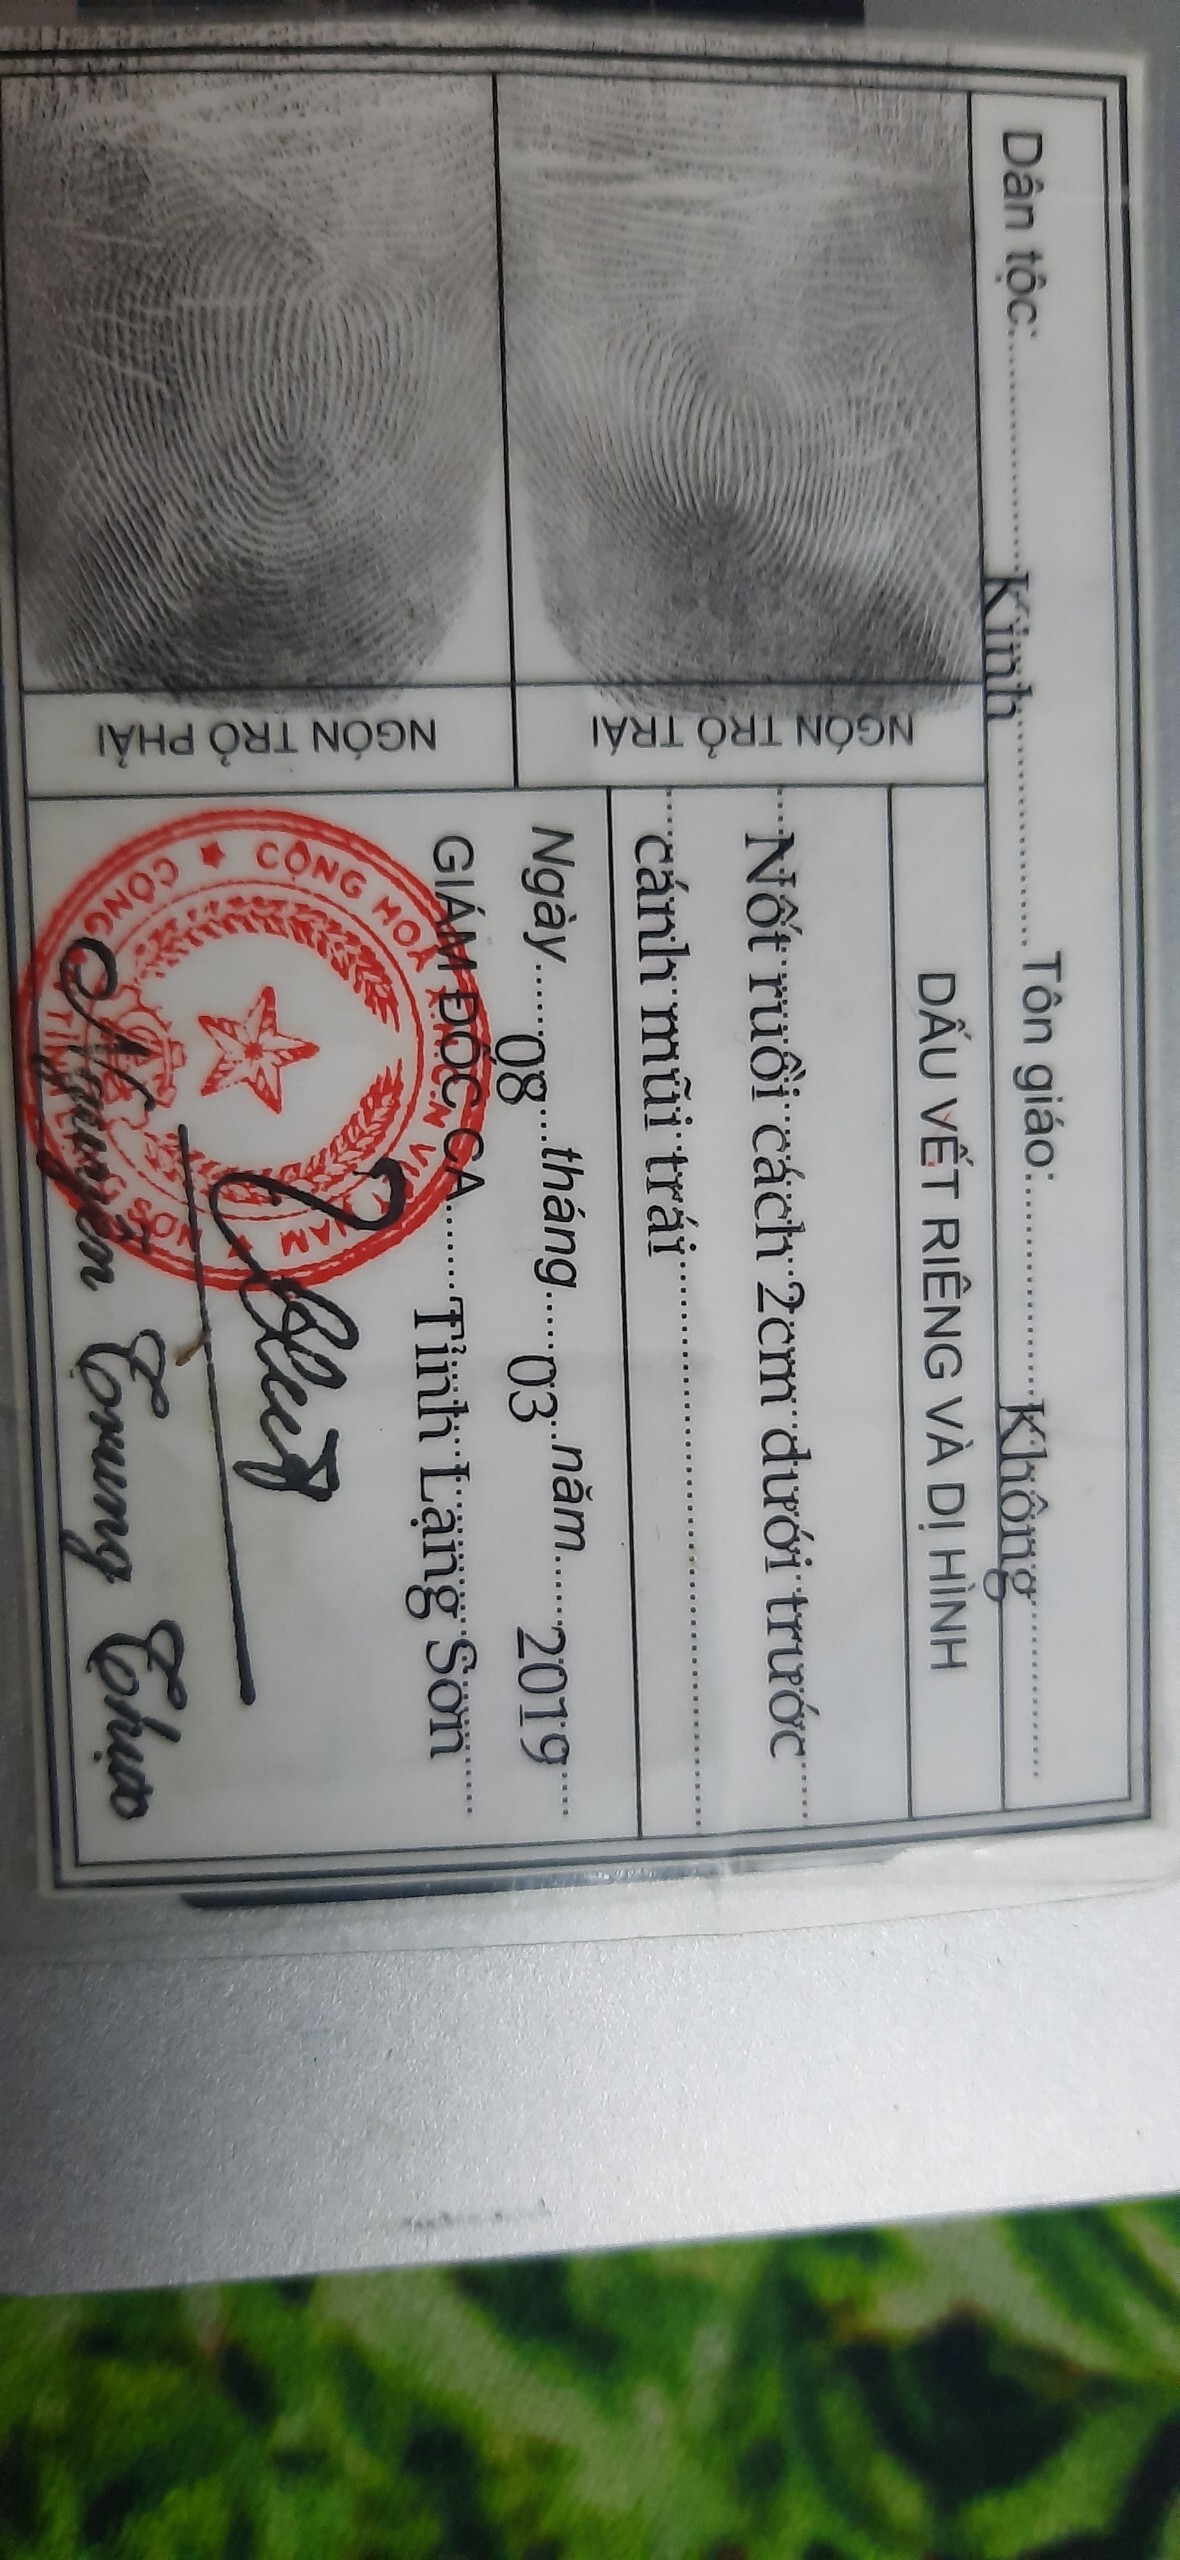 Dân tộc: Kinh Tôn giáo: Không
DẤU VẾT RIÊNG VÀ DỊ HÌNH
NGÓN TRỎ TRÁI
Nốt ruồi cách 2cm dưới trước
cánh mũi trái
NGÓN TRỎ PHẢI
Ngày 08 tháng 03 năm 2019
GIÁM ĐỐC CA Tỉnh Lạng Sơn
CỘNG HOÀ VIỆT NAM
CÔNG TỈNH SƠN
Nguyễn Trung